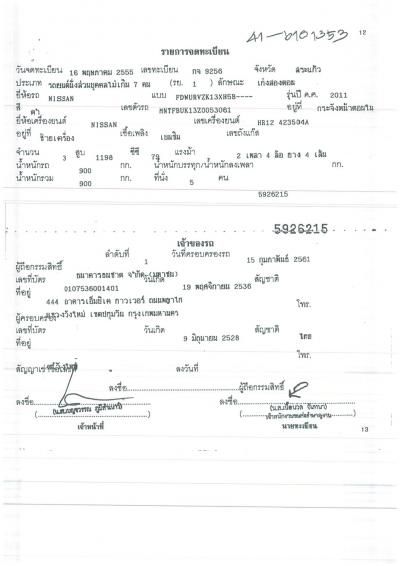 41-0101353 12
รายการจดทะเบียน
วันจดทะเบียน 16 พฤษภาคม 2555 เลขทะเบียน กจ 9256 จังหวัด สระแก้ว
ประเภท รถยนต์นั่งส่วนบุคคลไม่เกิน 7 คน (รย. 1 ) ลักษณะ เก๋งสองตอน
ยี่ห้อรถ NISSAN แบบ FDWURVZK13XH5B---- รุ่นปี ค.ศ. 2011
สี ดำ เลขตัวรถ MNTFBUK13Z0053061 อยู่ที่
ยี่ห้อเครื่องยนต์ NISSAN เลขเครื่องยนต์ HR12 423504A
อยู่ที่ ซ้ายเครื่อง เชื้อเพลิง เบนซิน เลขถังแก๊ส
จำนวน 3 สูบ 1198 ซีซี 79 แรงม้า 2 เพลา 4 ล้อ ยาง 4 เส้น
น้ำหนักรถ 900 กก. น้ำหนักบรรทุก/น้ำหนักลงเพลา กก.
น้ำหนักรวม 900 กก. ที่นั่ง 5 คน
5926215
5926215
เจ้าของรถ
ลำดับที่ 1 วันที่ครอบครองรถ 15 กุมภาพันธ์ 2561
ผู้ถือกรรมสิทธิ์ ธนาคารธนชาต จำกัด (มหาชน)
เลขที่บัตร 0107536001401 วันเกิด 19 พฤศจิกายน 2536 สัญชาติ
ที่อยู่ 444 อาคารเอ็มบีเค ทาวเวอร์ ถนนพญาไท โทร.
แขวงวังใหม่ เขตปทุมวัน กรุงเทพมหานคร
ผู้ครอบครอง
เลขที่บัตร วันเกิด 9 มิถุนายน 2528 สัญชาติ ไทย
ที่อยู่ โทร.
สัญญาเช่าซื้อเลขที่ ลงวันที่
ลงชื่อ ผู้ถือกรรมสิทธิ์
ลงชื่อ ลงชื่อ
เจ้าหน้าที่ นายทะเบียน
13